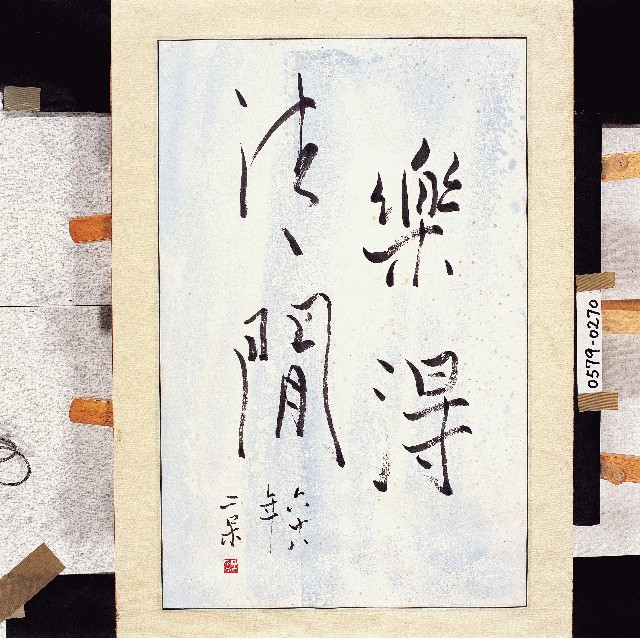 樂得
清閒
六十八
年
二呆
0579-0270